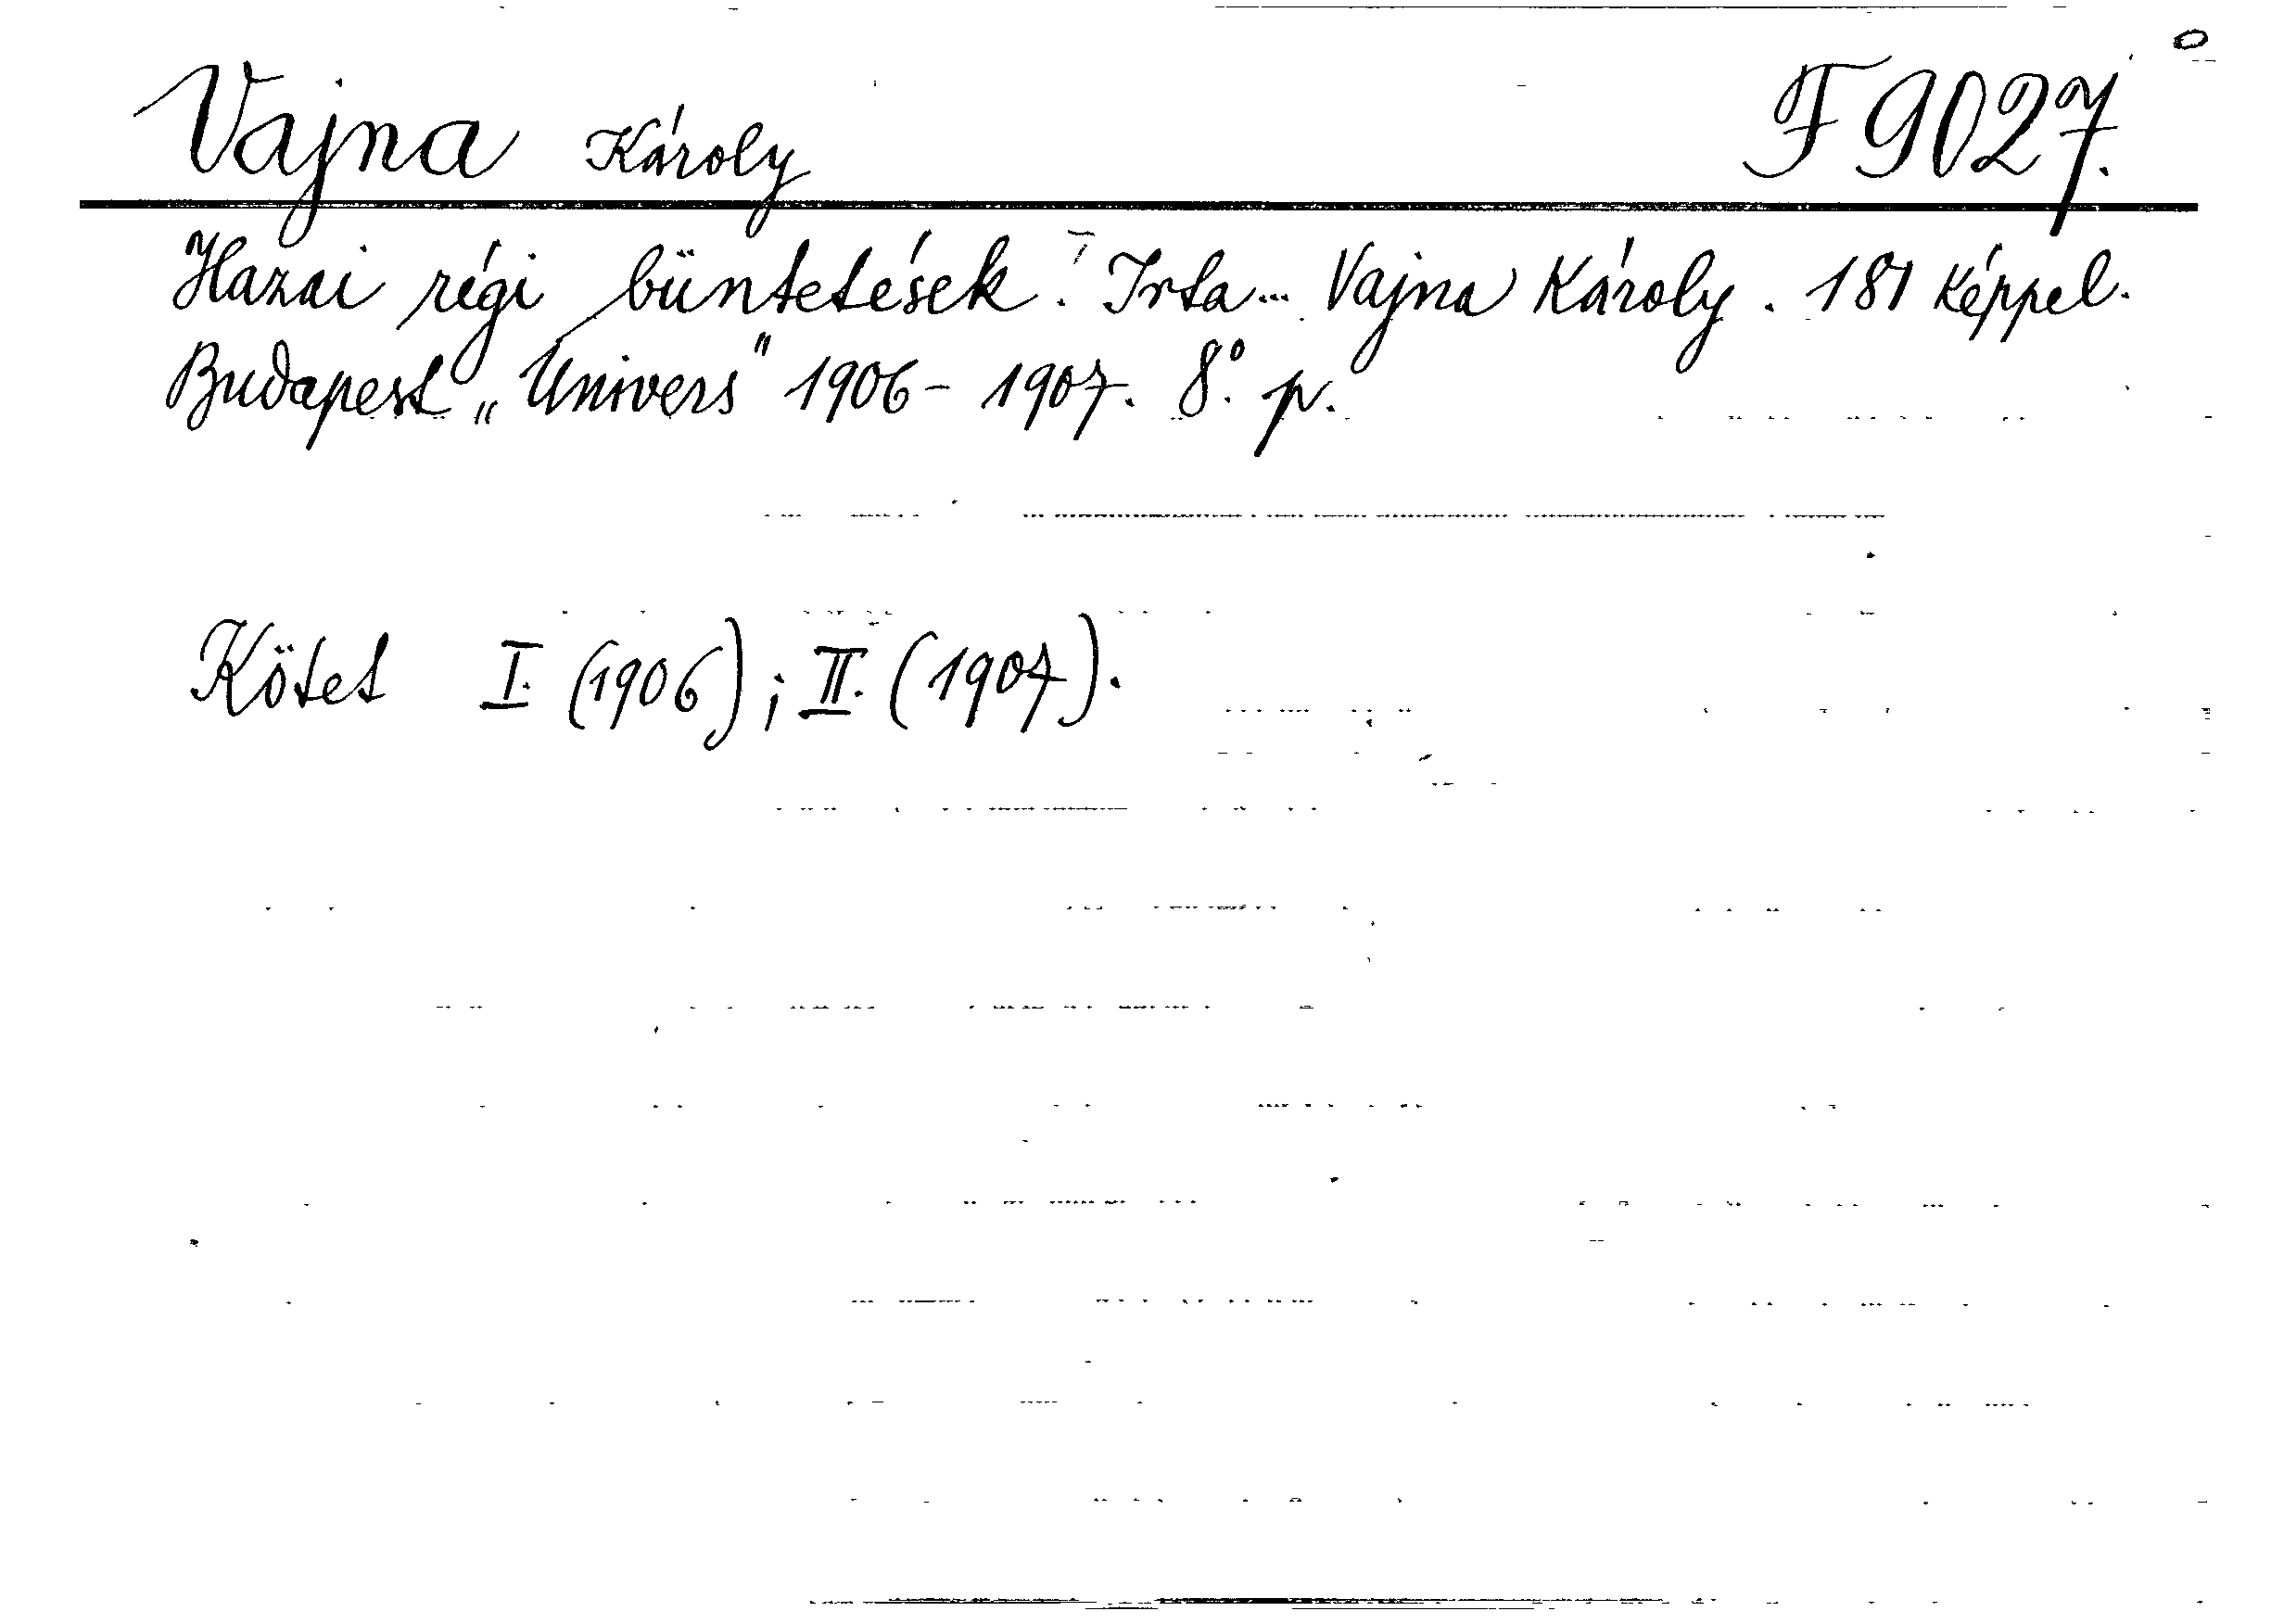 Vajna Károly F 9027.
Hazai régi büntetések. Irta... Vajna Károly. 181 képpel.
Budapest „Univers" 1906-1907. 8.° p.
Kötet I. (1906); II. (1907).